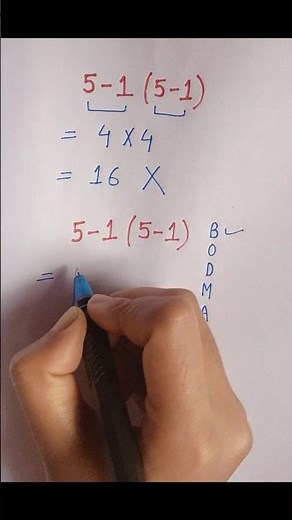 5-1 (5-1)
= 4 × 4
= 16 X
5-1 (5-1)
B ✓
O
D
M
A
=